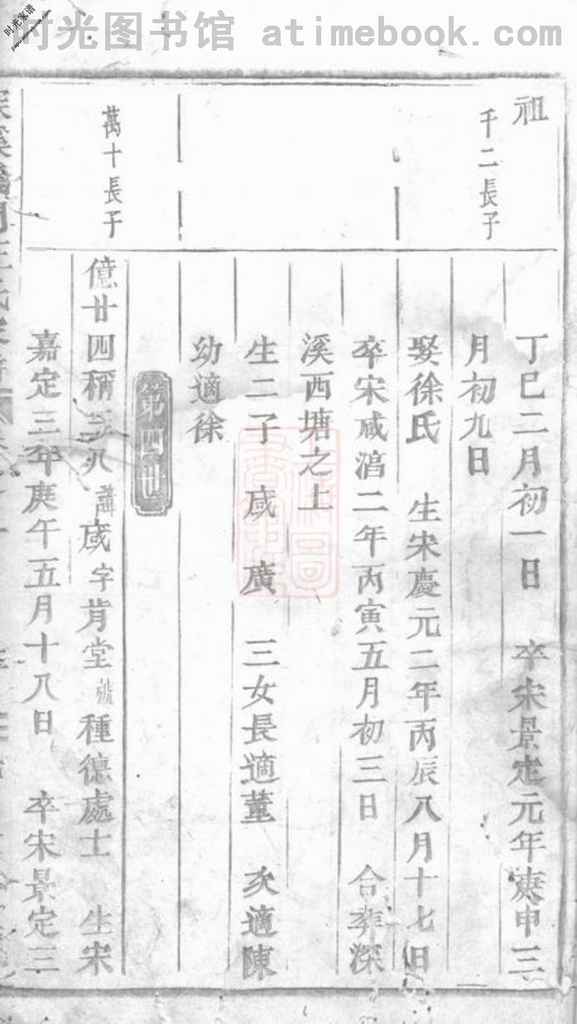 时光图书馆 atimebook.com
时光家谱
祖
千二長子
丁巳二月初一日 卒宋景定元年庚申三
月初九日
娶徐氏 生宋慶元二年丙辰八月十七日
卒宋咸湻二年丙寅五月初三日 合葬深
溪西塘之上
生二子 咸 廣 三女長適董 次適陳
幼適徐
第四世
萬十長子
億廿四稱三八諱咸字肯堂號種德處士 生宋
嘉定三年庚午五月十八日 卒宋景定三